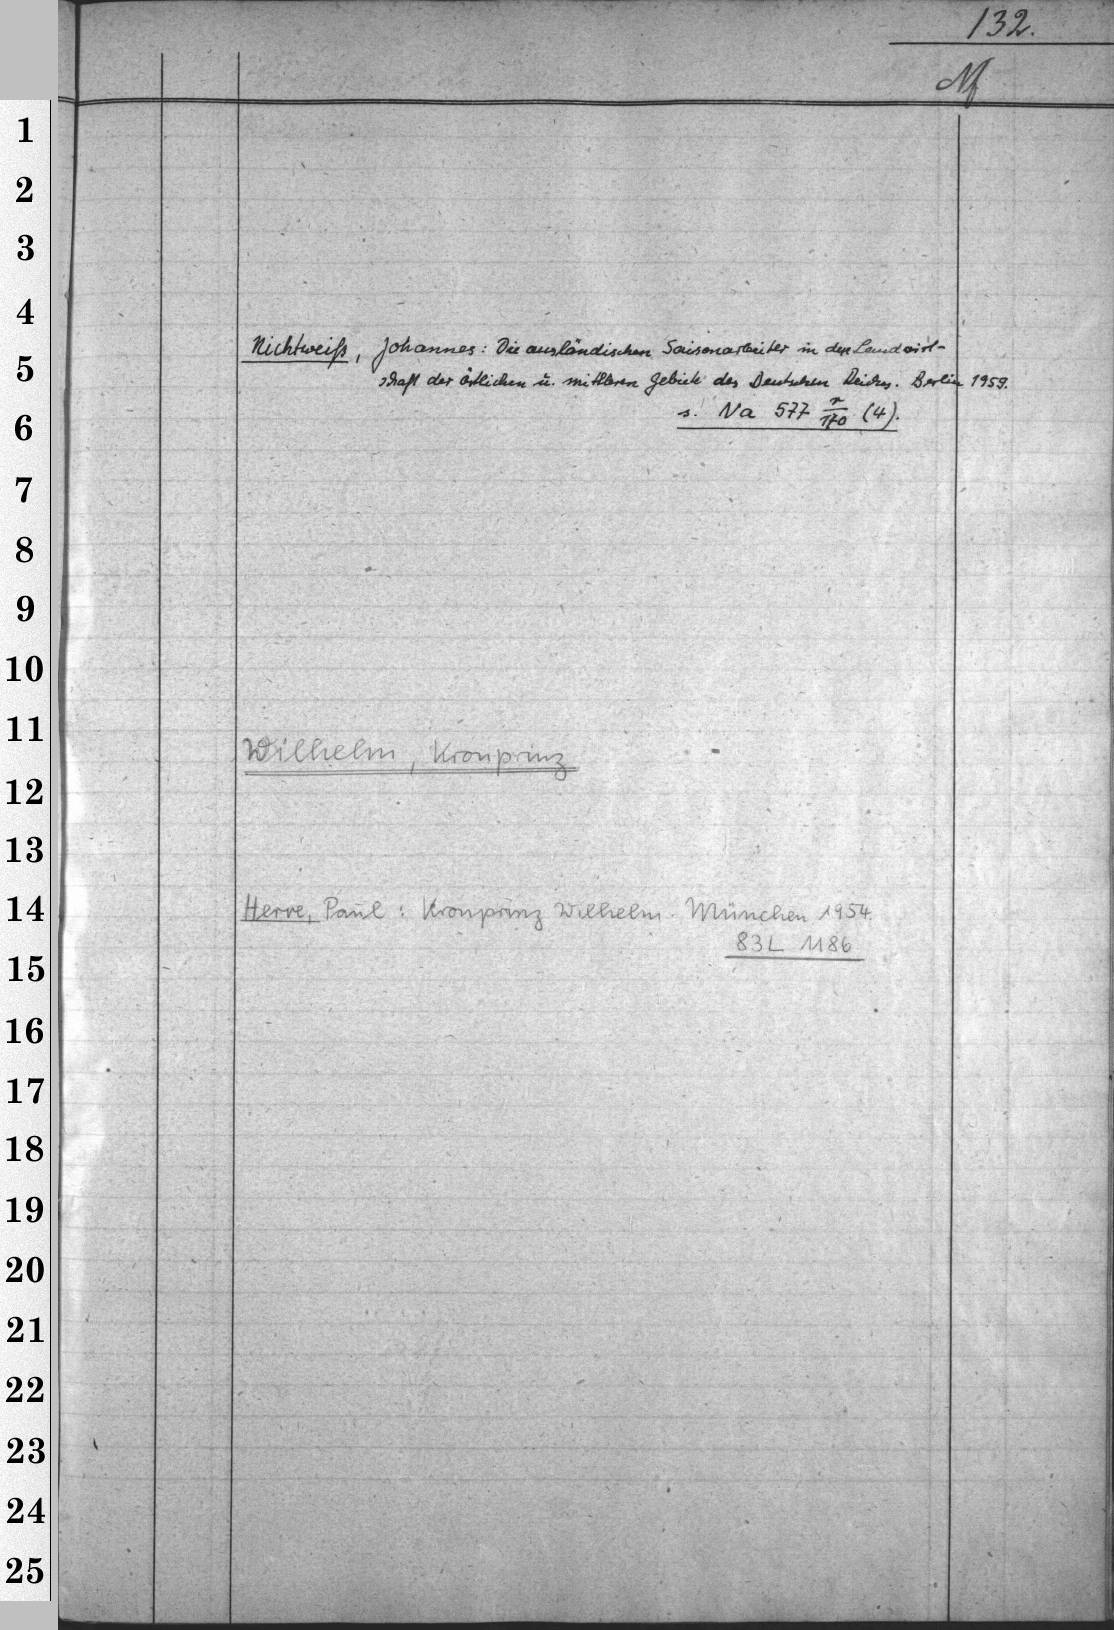 132.
Nf
1
2
3
4
Nichtweiß, Johannes: Die ausländischen Saisonarbeiter in der Landwirt-
5
schaft der östlichen u. mittleren Gebiete des Deutschen Reiches. Berlin 1959.
s. Na 577 r/170 (4).
6
7
8
9
10
11
Wilhelm, Kronprinz
12
13
14
Herre, Paul: Kronprinz Wilhelm. München 1954.
83L 1186
15
16
17
18
19
20
21
22
23
24
25